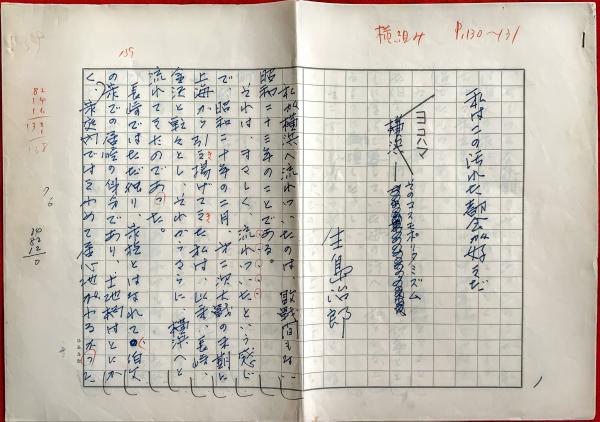 横組み P.130〜131
私はこの汚れた都会が好きだ
ヨコハマ
横浜―そのコスモポリタニズム
生島治郎
私が横浜へ流れついたのは、敗戦間もない
昭和二十三年のことである。
それは、まさしく、流れついたという感じ
で、昭和二十年の二月、第二次大戦の末期に
上海から引き揚げてきた私は、以来、長崎、
金沢と転々とし、それからさらに、横浜へと
流れてきたのであった。
長崎ではただ独り、家族とはなれて、伯父
の家での居候の身分であり、土地柄はとにか
く、家庭的ではきわめて居心地がわるかった
139